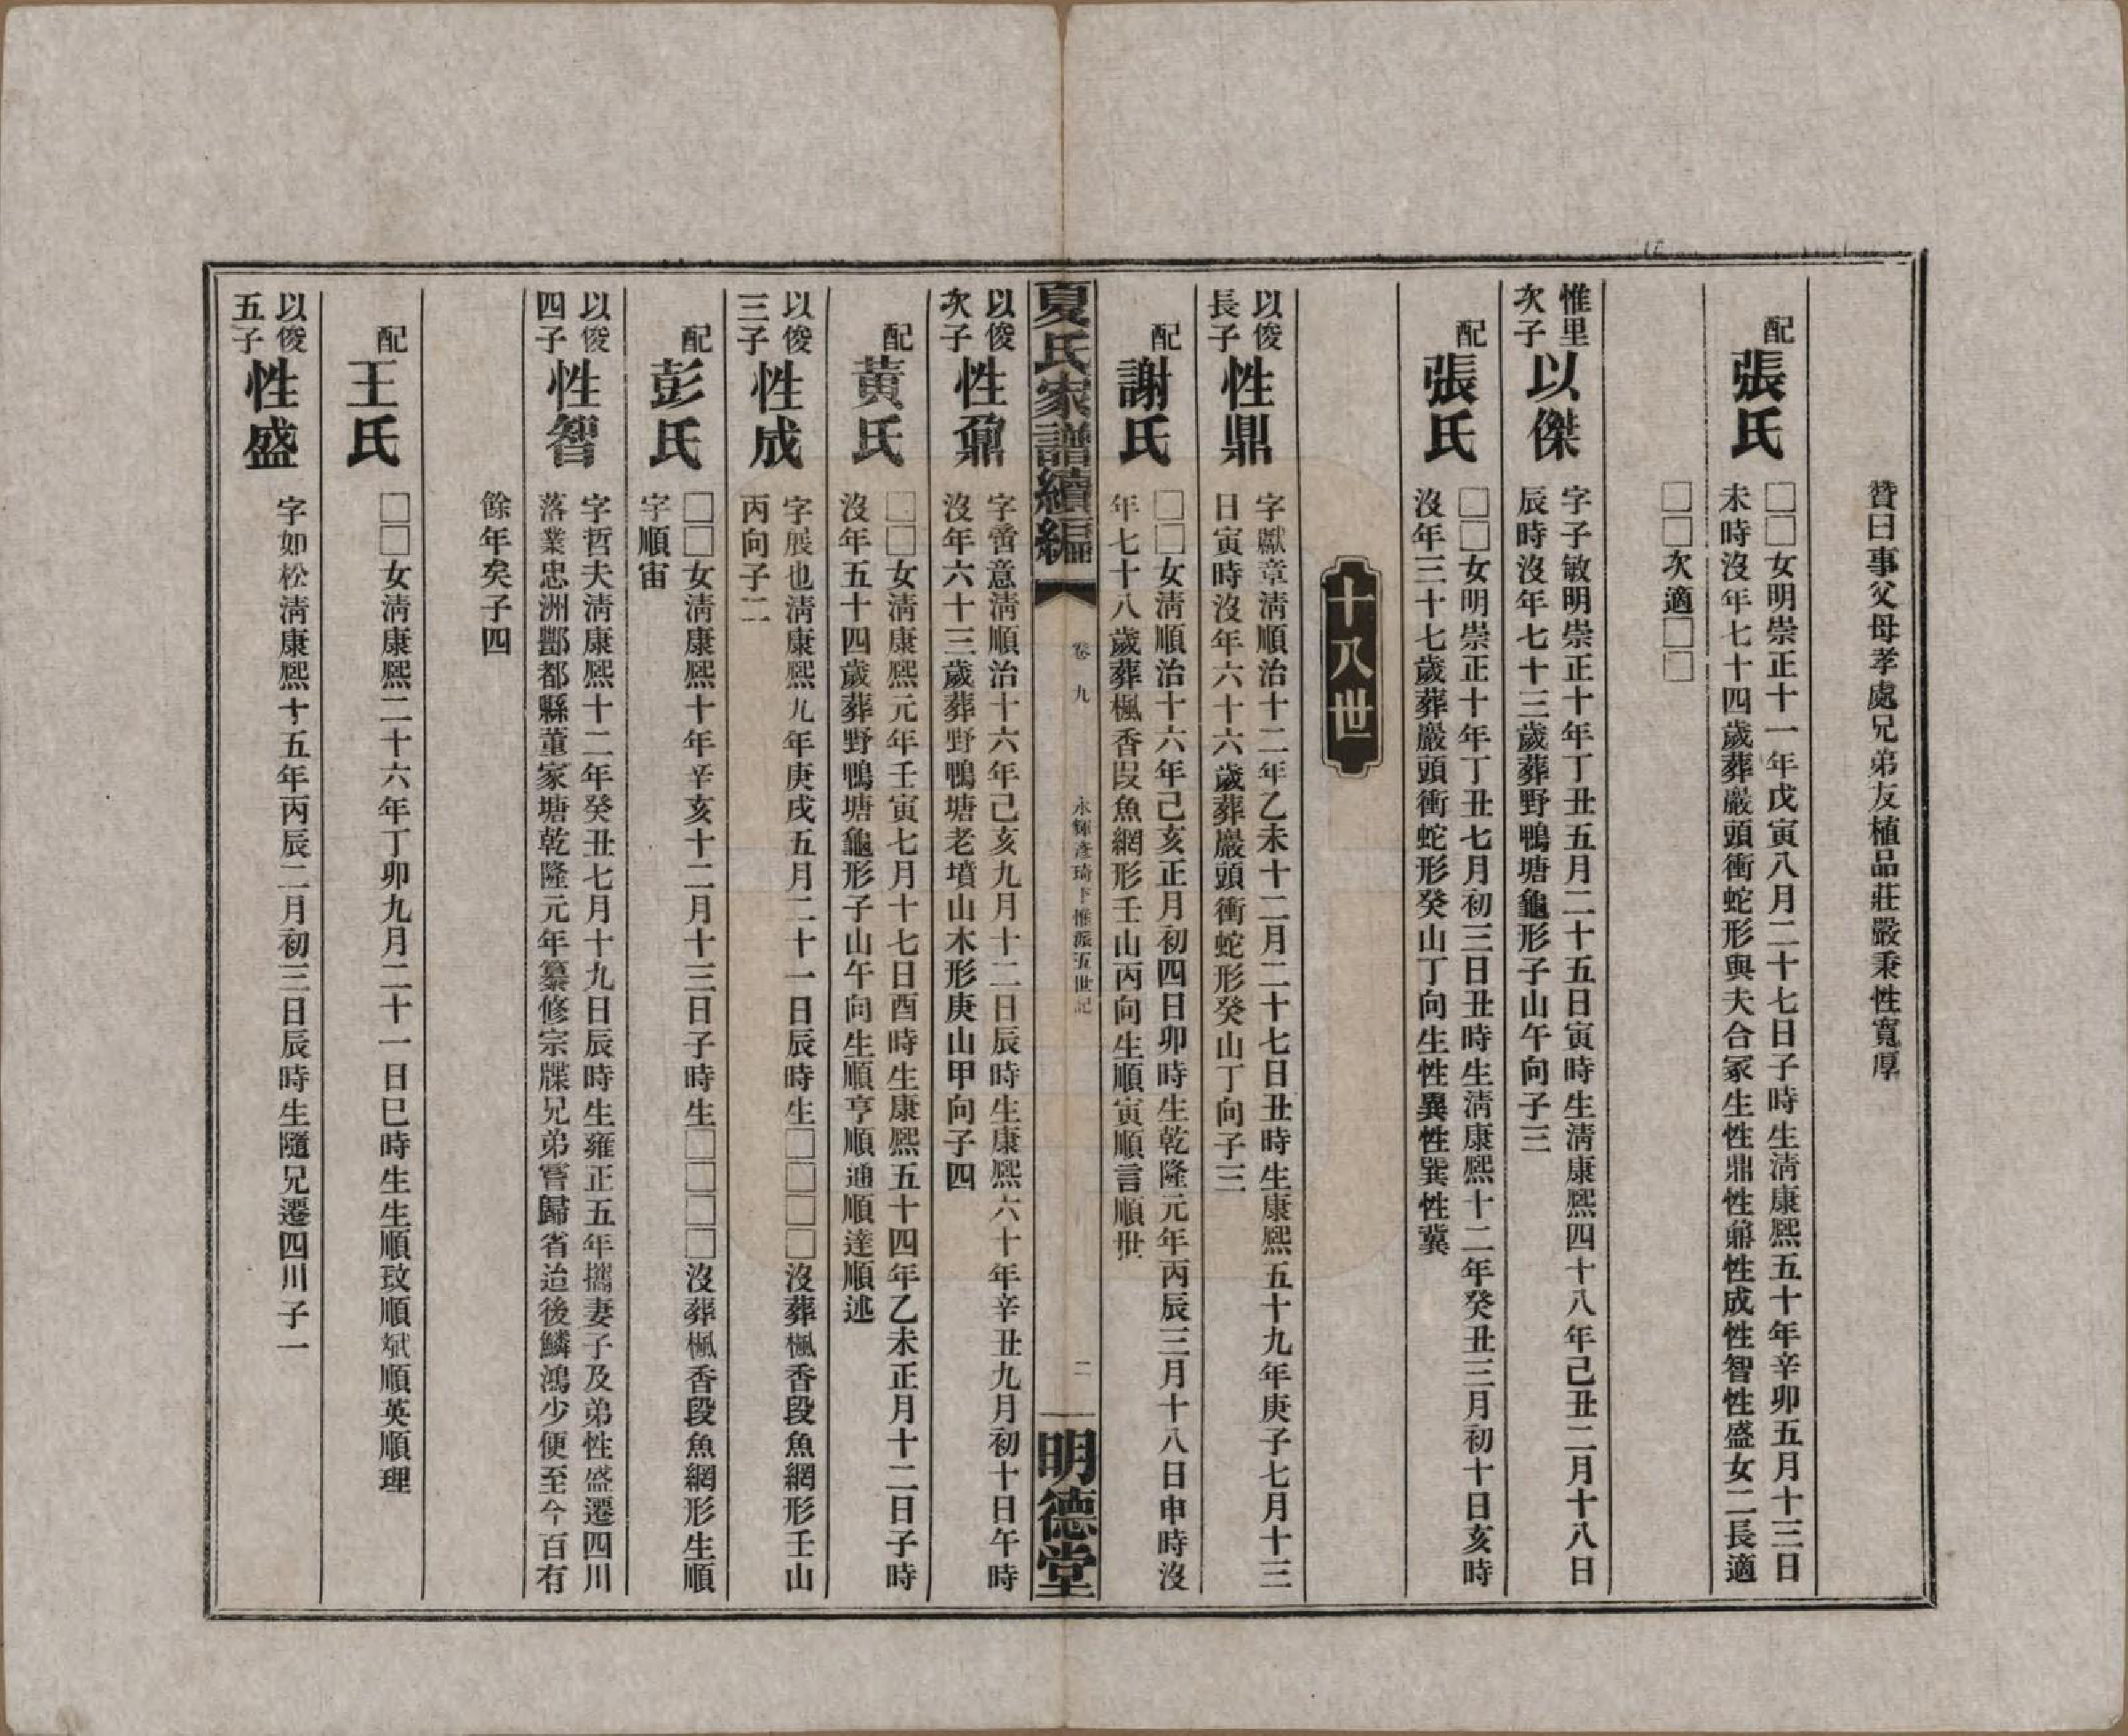 贊曰事父母孝處兄弟友植品莊嚴秉性寬厚
配張氏
□□女明崇正十一年戊寅八月二十七日子時生淸康熙五十年辛卯五月十三日
未時沒年七十四歲葬嚴頭衝蛇形與夫合冢生性鼎性鼐性成性智性盛女二長適
□□次適□□
惟里次子以傑
字子敏明崇正十年丁丑五月二十五日寅時生淸康熙四十八年己丑二月十八日
辰時沒年七十三歲葬野鴨塘龜形子山午向子三
配張氏
□□女明崇正十年丁丑七月初三日丑時生淸康熙十二年癸丑三月初十日亥時
沒年三十七歲葬嚴頭衝蛇形癸山丁向生性異性巽性冀
十八世
以俊長子性鼎
字獻章淸順治十二年乙未十二月二十七日丑時生康熙五十九年庚子七月十三
日寅時沒年六十六歲葬嚴頭衝蛇形癸山丁向子三
配謝氏
□□女淸順治十六年己亥正月初四日卯時生乾隆元年丙辰三月十八日申時沒
年七十八歲葬楓香段魚網形壬山丙向生順寅順言順世
夏氏家譜續編
卷九
永錫彥琦卞惟派五世記
二
明德堂
以俊次子性鼐
字啻意淸順治十六年己亥九月十二日辰時生康熙六十年辛丑九月初十日午時
沒年六十三歲葬野鴨塘老墳山木形庚山甲向子四
配黃氏
□□女淸康熙元年壬寅七月十七日酉時生康熙五十四年乙未正月十二日子時
沒年五十四歲葬野鴨塘龜形子山午向生順亨順通順達順述
以俊三子性成
字展也淸康熙九年庚戌五月二十一日辰時生□□□□沒葬楓香段魚網形壬山
丙向子二
配彭氏
□□女淸康熙十年辛亥十二月十三日子時生□□□□沒葬楓香段魚網形生順
字順宙
以俊四子性智
字哲夫淸康熙十二年癸丑七月十九日辰時生雍正五年攜妻子及弟性盛遷四川
落業忠洲酆都縣董家塘乾隆元年纂修宗牒兄弟嘗歸省迨後鱗鴻少便至今百有
餘年矣子四
配王氏
□□女淸康熙二十六年丁卯九月二十一日巳時生生順玟順斌順英順理
以俊五子性盛
字如松淸康熙十五年丙辰二月初三日辰時生隨兄遷四川子一